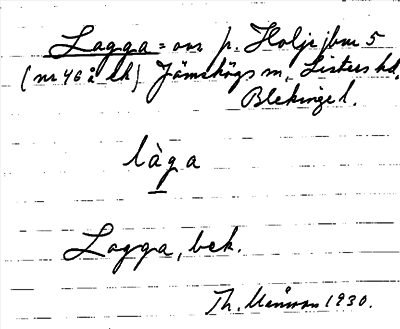 Lagga = om p. Holje jbm 5
(nr 46 å ek) Jämshögs sn, Listers hd,
Blekinge l.
làga
Lagga, bek.
Th. 1930.